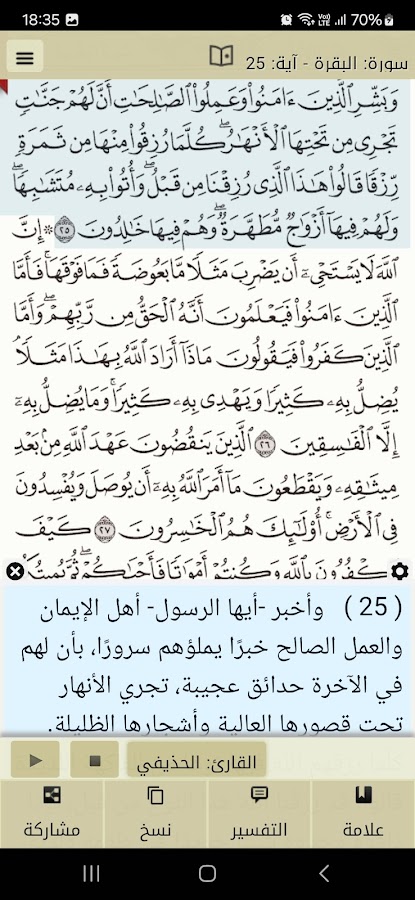 18:35 70%
سورة: البقرة - آية: 25
وَبَشِّرِ ٱلَّذِينَ ءَامَنُوا۟ وَعَمِلُوا۟ ٱلصَّـٰلِحَـٰتِ أَنَّ لَهُمْ جَنَّـٰتٍ
تَجْرِى مِن تَحْتِهَا ٱلْأَنْهَـٰرُ ۖ كُلَّمَا رُزِقُوا۟ مِنْهَا مِن ثَمَرَةٍ
رِّزْقًا قَالُوا۟ هَـٰذَا ٱلَّذِى رُزِقْنَا مِن قَبْلُ ۖ وَأُتُوا۟ بِهِۦ مُتَشَـٰبِهًا ۖ
وَلَهُمْ فِيهَآ أَزْوَٰجٌ مُّطَهَّرَةٌ ۖ وَهُمْ فِيهَا خَـٰلِدُونَ ٢٥ ۞ إِنَّ
ٱللَّهَ لَا يَسْتَحْىِۦٓ أَن يَضْرِبَ مَثَلًا مَّا بَعُوضَةً فَمَا فَوْقَهَا ۚ فَأَمَّا
ٱلَّذِينَ ءَامَنُوا۟ فَيَعْلَمُونَ أَنَّهُ ٱلْحَقُّ مِن رَّبِّهِمْ ۖ وَأَمَّا
ٱلَّذِينَ كَفَرُوا۟ فَيَقُولُونَ مَاذَآ أَرَادَ ٱللَّهُ بِهَـٰذَا مَثَلًا ۘ
يُضِلُّ بِهِۦ كَثِيرًا وَيَهْدِى بِهِۦ كَثِيرًا ۚ وَمَا يُضِلُّ بِهِۦٓ
إِلَّا ٱلْفَـٰسِقِينَ ٢٦ ٱلَّذِينَ يَنقُضُونَ عَهْدَ ٱللَّهِ مِنۢ بَعْدِ
مِيثَـٰقِهِۦ وَيَقْطَعُونَ مَآ أَمَرَ ٱللَّهُ بِهِۦٓ أَن يُوصَلَ وَيُفْسِدُونَ
فِى ٱلْأَرْضِ ۚ أُو۟لَـٰٓئِكَ هُمُ ٱلْخَـٰسِرُونَ ٢٧ كَيْفَ
تَكْفُرُونَ بِٱللَّهِ وَكُنتُمْ أَمْوَٰتًا فَأَحْيَـٰكُمْ ۖ ثُمَّ يُمِيتُكُمْ
( 25 ) وأخبر -أيها الرسول- أهل الإيمان
والعمل الصالح خبرًا يملؤهم سرورًا، بأن لهم
في الآخرة حدائق عجيبة، تجري الأنهار
تحت قصورها العالية وأشجارها الظليلة.
القارئ: الحذيفي
علامة
التفسير
نسخ
مشاركة